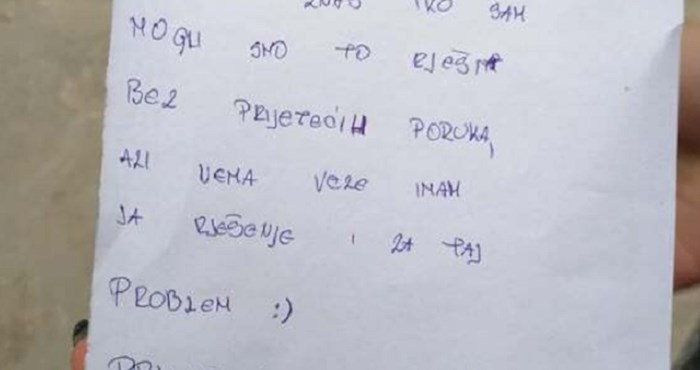 ZNAŠ TKO SAM
MOGLI SMO TO RJEŠITI
BEZ PRIJETEĆIH PORUKA,
ALI NEMA VEZE IMAM
JA RJEŠENJE I ZA TAJ
PROBLEM :)